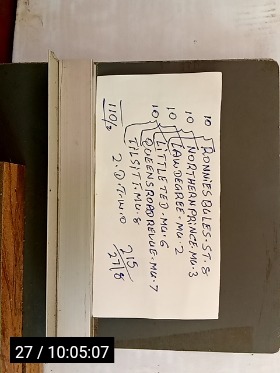 10 RONNIES RULES · ST · 8
10 NORTHERN PRINCE · MU · 3
10 LAW DEGREE · MU · 2
10 LITTLE TED · MU · 6
QUEENS ROAD REVUE · MU · 7
TILSITT · MU · 8
2 · D · T · W · O
110/3
215
27/8
27 / 10:05:07